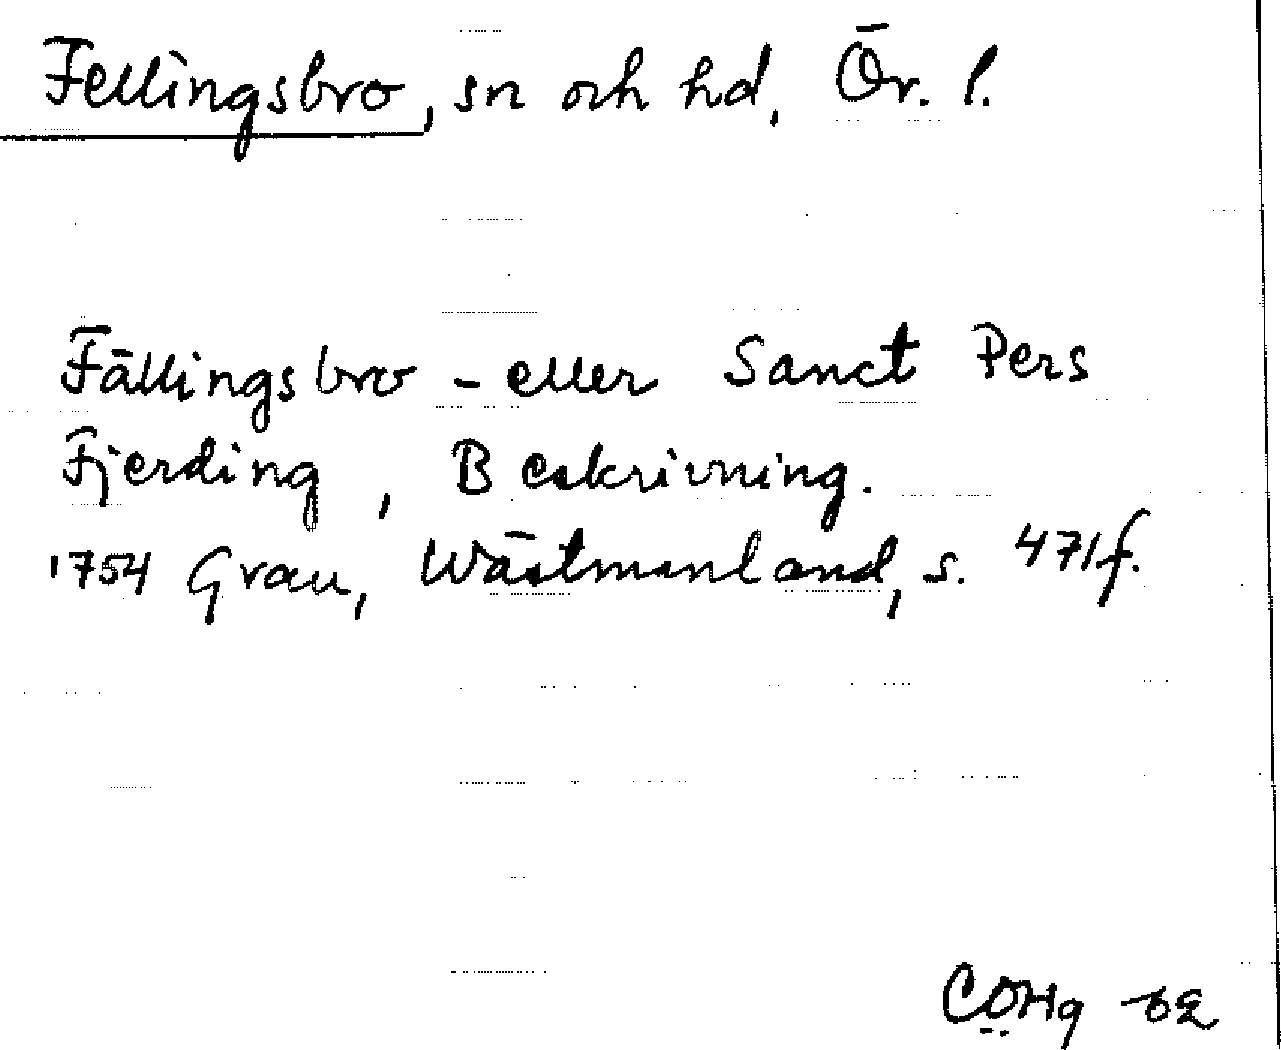 Fellingsbro, sn och hd, Ör. l.
Fällingsbro - eller Sanct Pers
Fjerding, Beskrivning.
1754 Grau, Wästmanland, s. 471f.